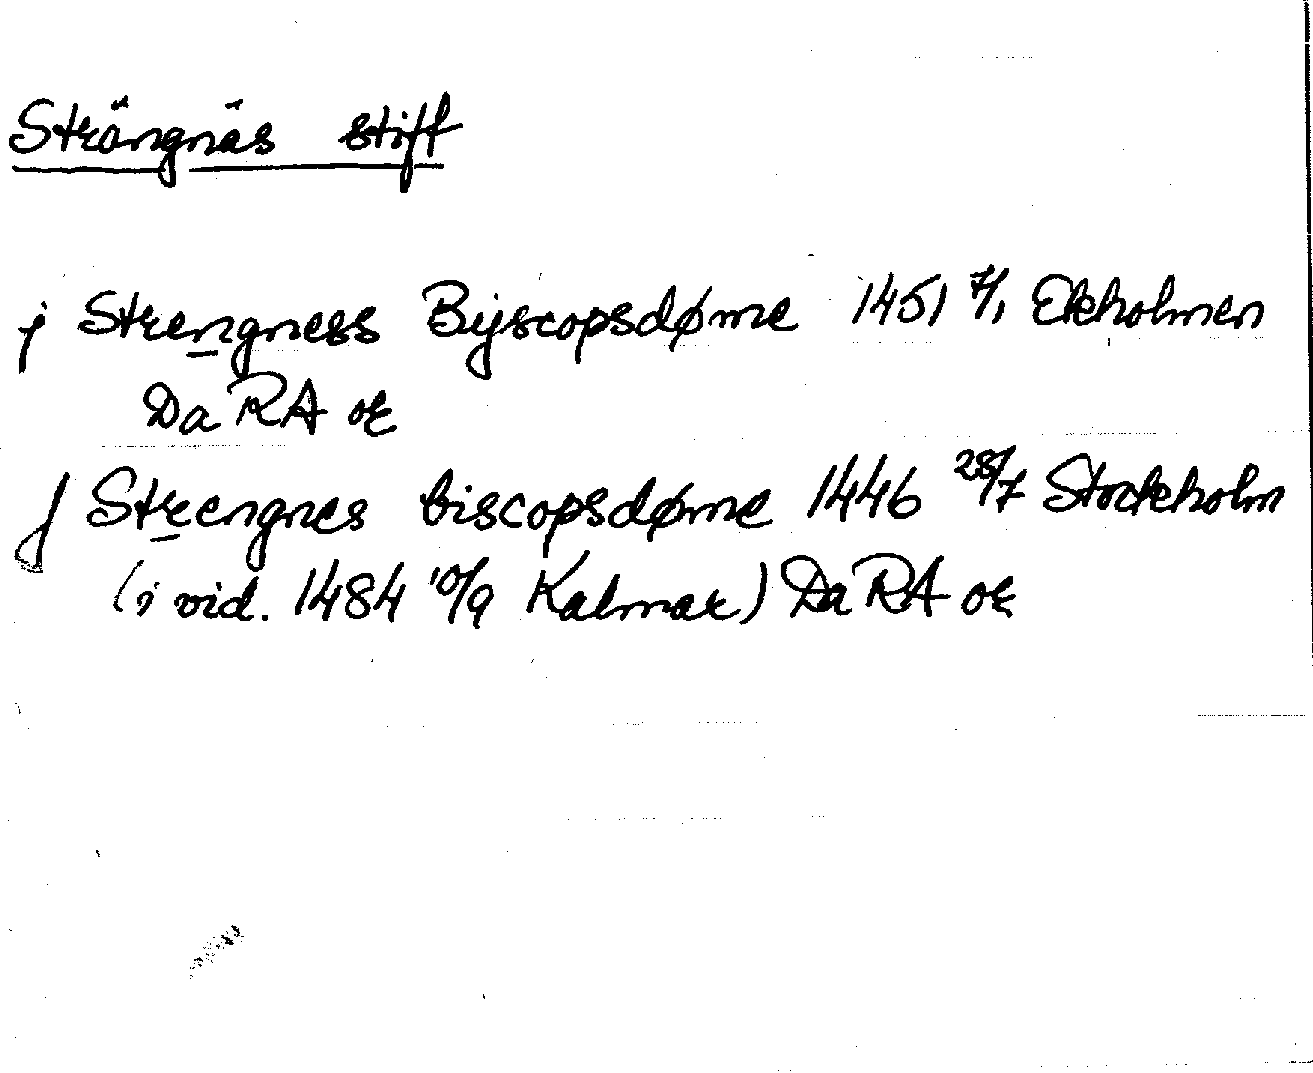 Strängnäs stift
j Strengness Bijscopsdøme 1451 7/1 Ekholmen
Da RA or
j Strengnes biscopsdøme 1446 28/7 Stockholm
(i vid. 1484 10/9 Kalmar) Da RA or